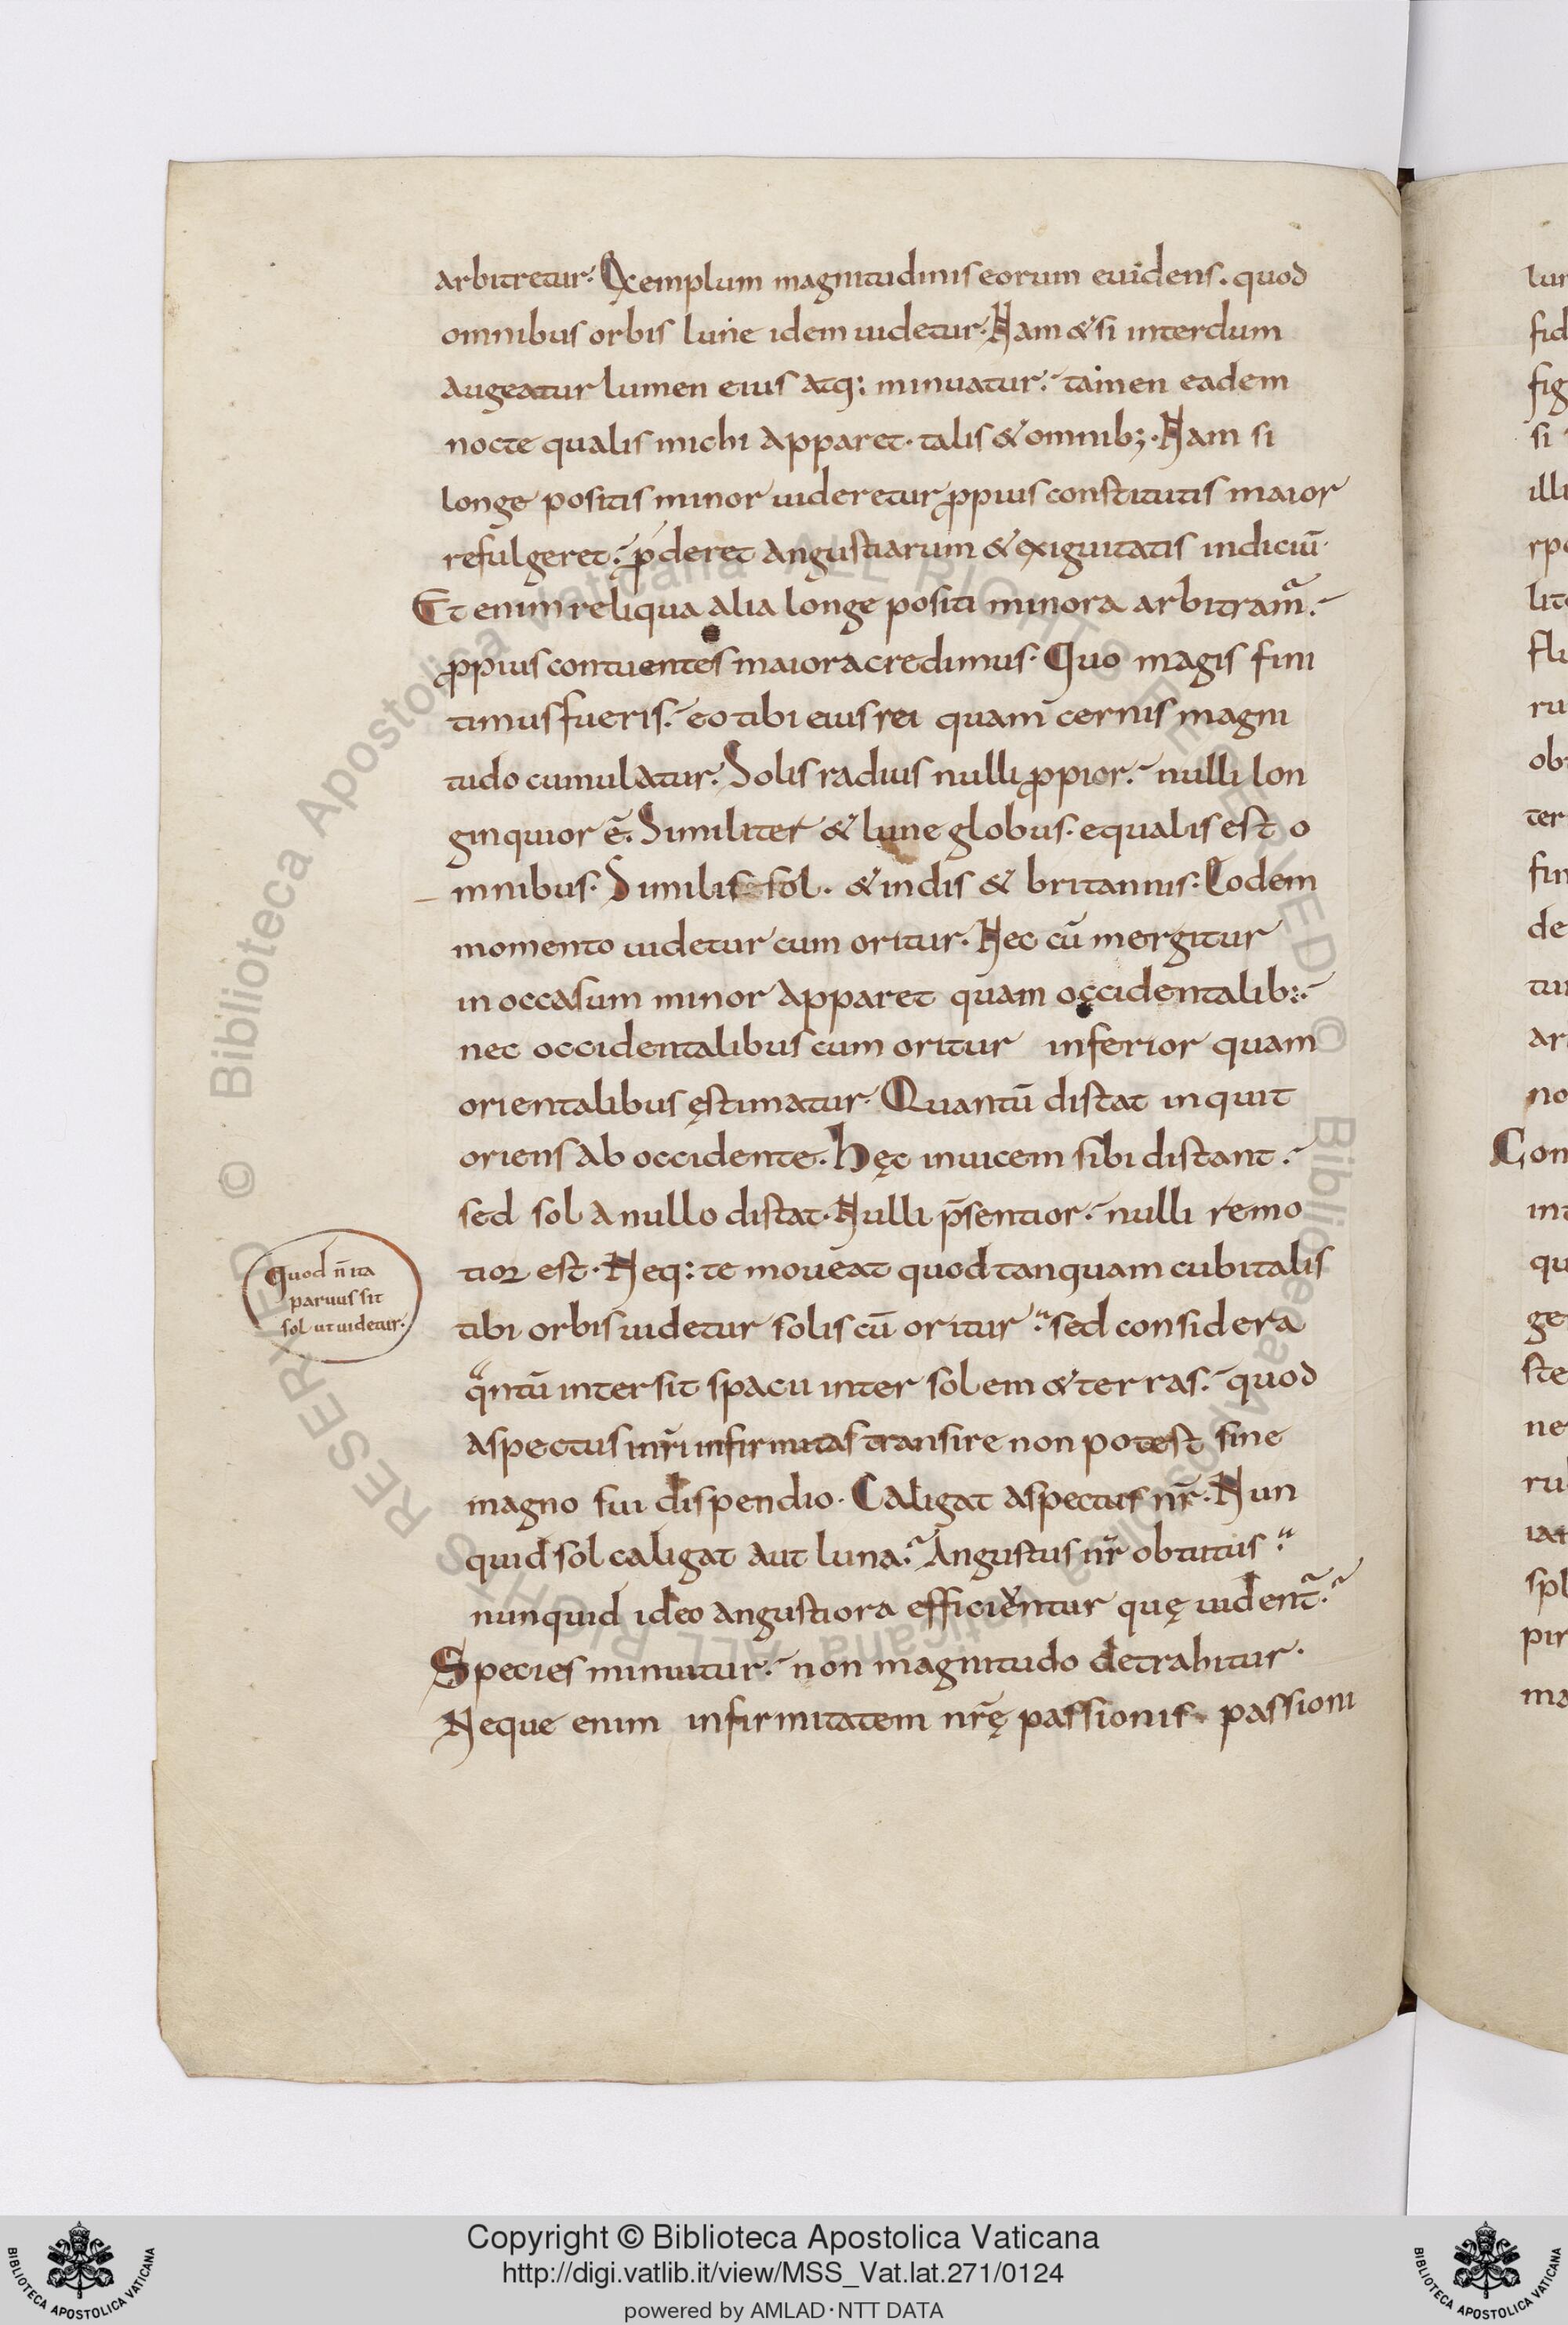 arbitretur. Exemplum magnitudinis eorum euidens. quod
omnibus orbis lune idem uidetur. Nam & si interdum
augeatur lumen eius atq; minuatur. tamen eadem
nocte qualis michi apparet. talis & omnib;. Nam si
longe positis minor uideretur ꝓpius constitutis maior
refulgeret. p̄deret angustiarum & exiguitatis indiciū.
Et enim reliqua alia longe positi minora arbitram̃.
ꝓpius contuentes maiora credimus. Quo magis fini
timus fueris. eo tibi eius rei quam cernis magni
tudo cumulatur. Solis radius nulli ꝓpior. nulli lon
ginquior ē. Similiter & lune globus. equalis est o
mnibus. Similis sol. & indis & britannis. Eodem
momento uidetur cum oritur. Nec cū mergitur
in occasum minor apparet quam occidentalib;.
nec occidentalibus cum oritur inferior quam
orientalibus ęstimatur. Quantū distat inquit
oriens ab occidente. Hęc inuicem sibi distant.
sed sol a nullo distat. Nulli p̄sentior. nulli remo
tior est. Neq; te moueat quod tanquam cubitalis
tibi orbis uidetur solis cū oritur. sed considera
qͣntū intersit spacii inter solem & terras. quod
aspectus nr̄i infirmitas transire non potest sine
magno sui dispendio. Caligat aspectus nr̄. Nun
quid sol caligat aut luna. Angustus nr̄ obtutus.
nunquid ideo angustiora efficientur quę uident̃.
Species minuitur. non magnitudo detrahitur.
Neque enim infirmitatem nr̄ę passionis passioni
Quod n̄ ita
paruus sit
sol ut uidetur.
lun
fid
fig
si
illi
rpo
lit
flu
ru
ob
ter
fin
de
tur
ar
no
Con
int
qu
ge
ste
ne
ru
iac
spl
pir
ma
© Biblioteca Apostolica Vaticana ALL RIGHTS RESERVED
© Biblioteca Apostolica Vaticana ALL RIGHTS RESERVED
Copyright © Biblioteca Apostolica Vaticana
http://digi.vatlib.it/view/MSS_Vat.lat.271/0124
powered by AMLAD·NTT DATA
BIBLIOTECA APOSTOLICA VATICANA
BIBLIOTECA APOSTOLICA VATICANA